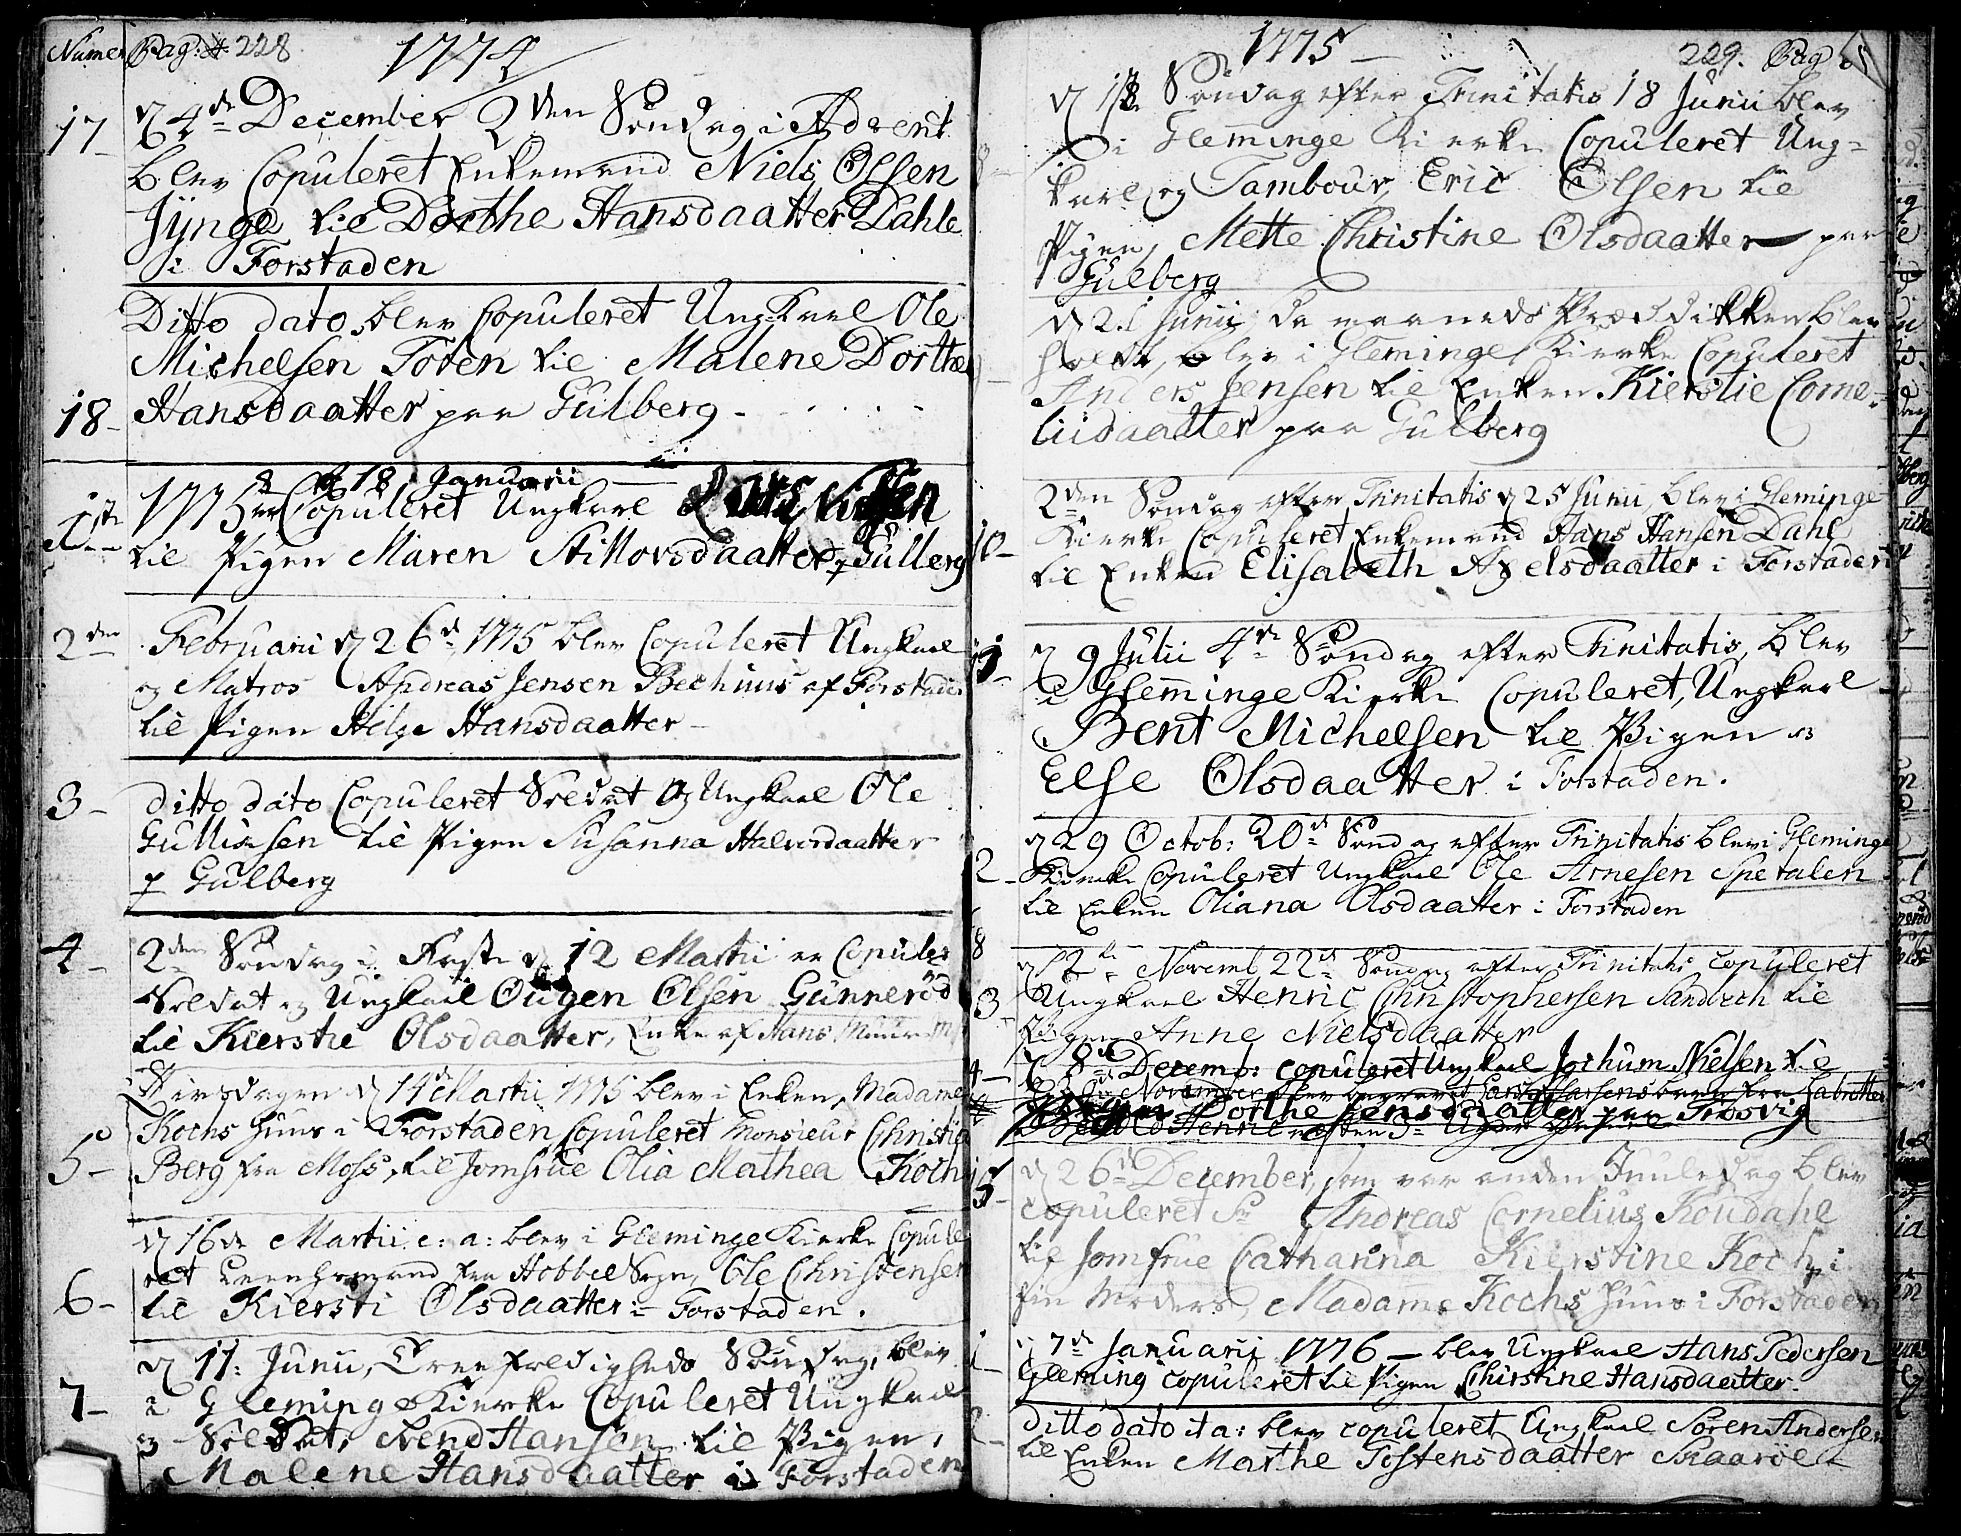 Numer Pag: 228 1774
17 d 4de December 2den Søndag i Advent
blev Copuleret Enkemand Niels Olsen
Jynge til Dorthe Hansdaatter Dahle
i Forstaden
Ditto dato blev Copuleret Ungkarl Ole
Michelsen Toten til Malene Dorthe
18 Hansdaatter paa Gulberg
1775 d 18 Januarii
1ste er Copuleret Ungkarl
til Pigen Maren Stillovsdaatter Gulberg
2den Februarii d 26d 1775 blev Copuleret Ungkarl
og Matros Andreas Jensen Bechuus af Forstaden
til Pigen Helge Hansdaatter
3 ditto dato Copuleret Soldat og Ungkarl Ole
Gullissen til Pigen Susanna Halvorsdaatter
p Gulberg
4 2den Søndag i Faste d 12 Martii er Copuler
Soldat og Ungkarl Ougen Olsen Gunnerød
til Kierstie Olsdaatter, Enke af Hans
Tirsdagen d 14d Martii 1775 blev i Enken, Madame
Kochs Huus i Forstaden Copuleret Monsieur Christia
5 Berg fra Moss, til Jomfrue Olia Mathea Koch
d 16de Martii e: a: blev i Gleminge Kierke Copule
ret Leensmand fra Hobbel Sogn, Ole Christensen
6 til Kiersti Olsdaatter i Forstaden.
d 11: Junii, Treefoldigheds Søndag, blev
7 i Gleminge Kierke Copuleret Ungkarl
og Soldat, Svend Hansen til Pigen,
Malene Hansdaatter i Forstaden
1775 229. Pag
d 18 Søndag efter Trinitatis 18 Junii blev
i Gleminge Kierke Copuleret Ung=
karl og Tambour, Eric Olsen til
Pigen, Mette Christine Olsdaatter paa
Gulberg
d 21 Junii, da maaneds Prædikken blev
holdt, blev i Gleminge Kierke Copuleret
Anders Jensen til Enken Kierstie Corne=
liidaatter paa Gulberg
2den Søndag efter Trinitatis d 25 Junii, blev i Gleminge
10 Kierke Copuleret Enkemand Hans Hansen Dahl
til Enken Elisabeth Axelsdaatter i Forstaden
d 9 Julii 4de Søndag efter Trinitatis, blev
i Gleminge Kierke Copuleret, Ungkarl
Bent Michelsen til Pigen
Else Olsdaatter i Forstaden.
d 29 Octob: 20d Søndag efter Trinitatis blev i Gleminge
2 Kierke Copuleret Ungkarl Ole Arnesen Spetalen
til Enken Oliana Olsdaatter i Forstaden
d 12te Novemb 22d Søndag efter Trinitatis copuleret
3 Ungkarl Henric Christophersen Sandvech til
Pigen Anne Nielsdaatter
4 d 8de Decemb: copuleret Ungkarl Jochum Nielsen til
Pigen Dorthe Jensdaatter paa Trosvig
d 26d December, som var anden Juule Dag blev
5 copuleret Sr Andreas Cornelius Koudahl
til Jomfrue Catharina Kierstine Koch, i
sin Moders, Madame Kochs Huus i Forstaden
1 d 7de Januarii 1776 blev Ungkarl Hans Pedersen
Gleming copuleret til Pigen Chirstine Hansdaatter.
2 ditto dato it a: blev copuleret Ungkarl Søren Andersen
til Enken Marthe Tostensdaatter Skaarøe